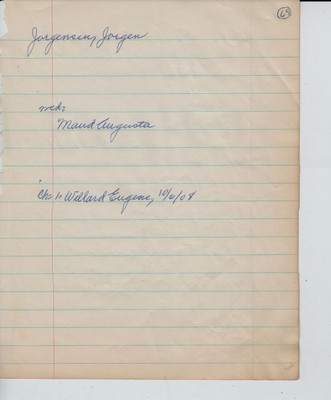 65
Jorgensen, Jorgen
wed:
Maud Augusta
Ch: 1. Willard Eugene, 10/6/08